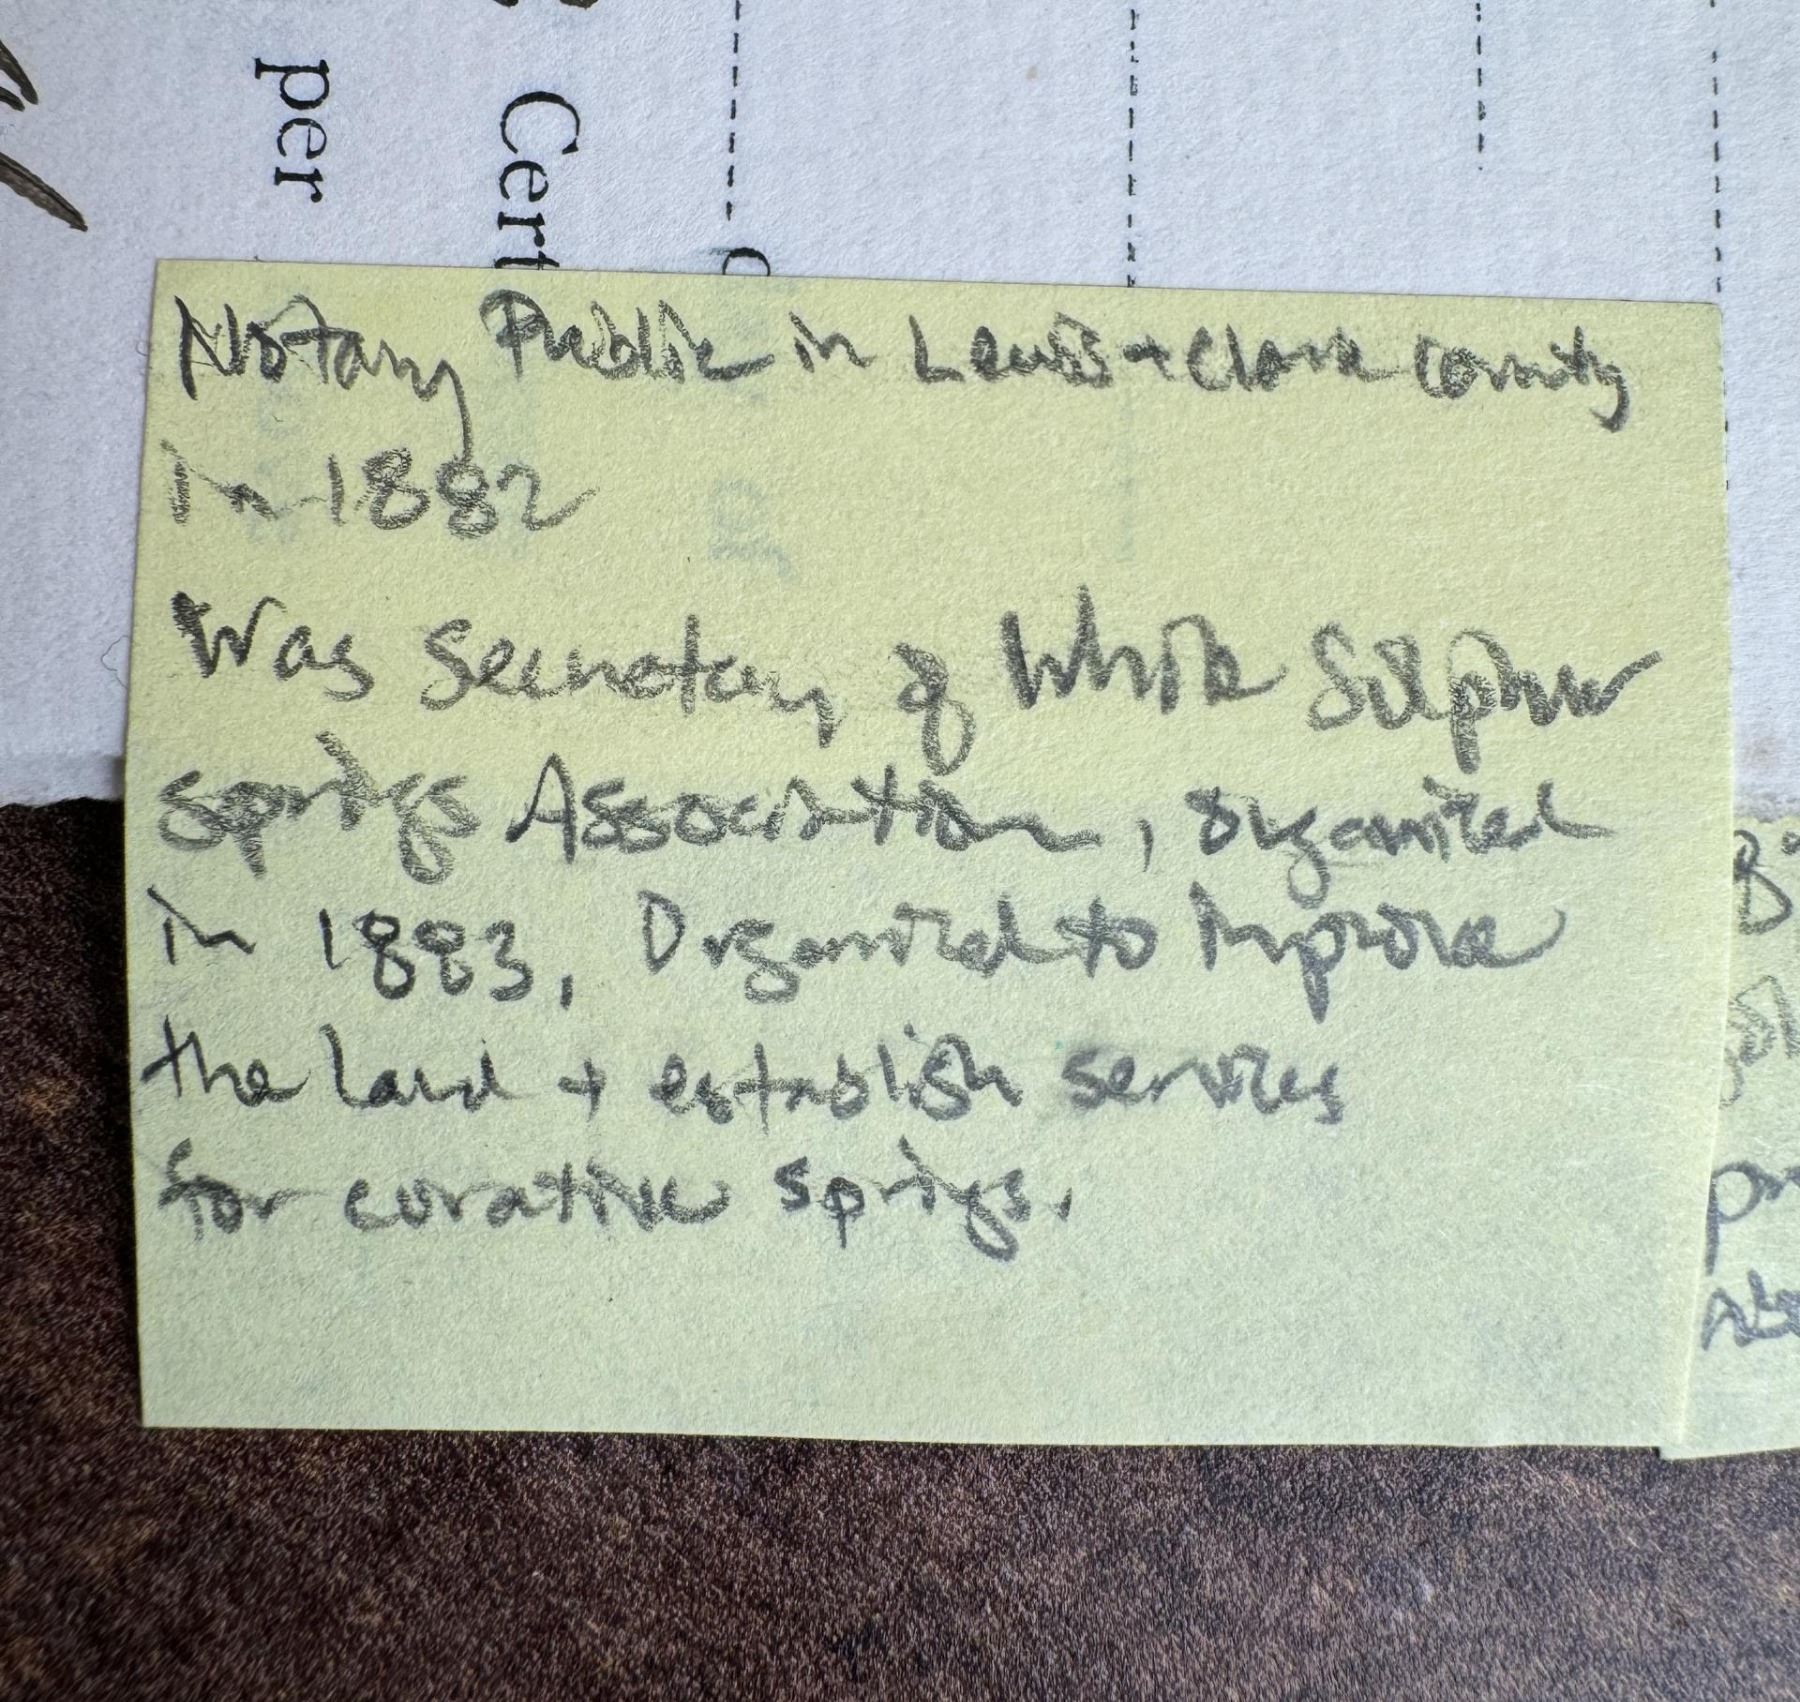 per
Cert
Notary Public in Lewis + Clark County
In 1882
Was Secretary of White Sulphur
Springs Association, organized
in 1883, Organized to improve
the land + establish services
for curative springs.